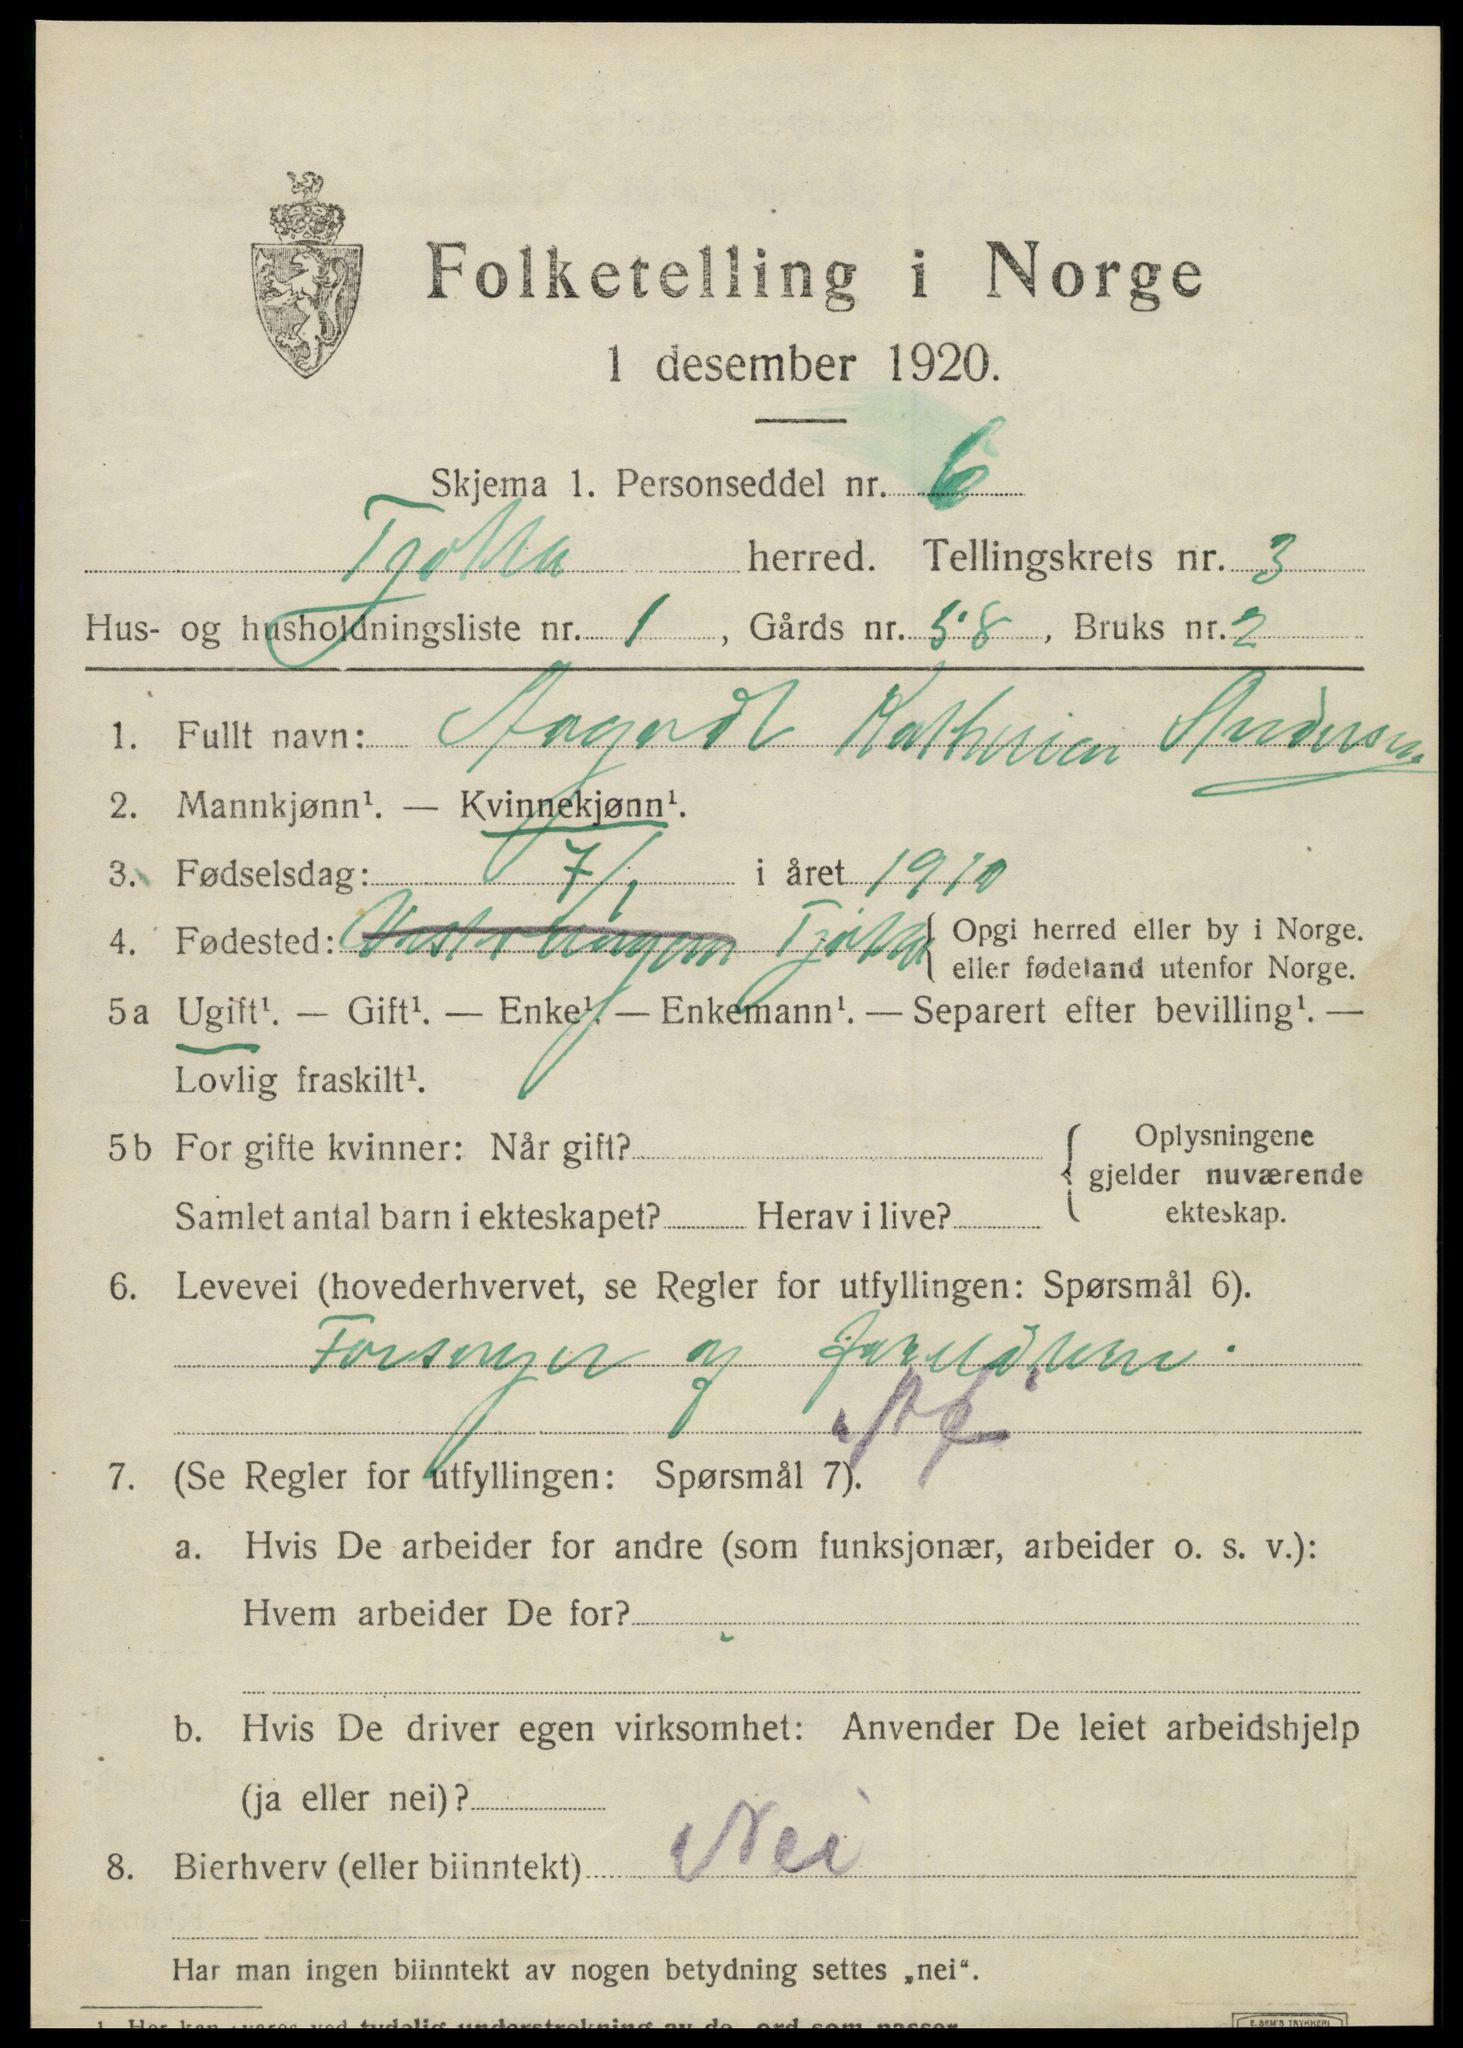 Folketelling i Norge
1 desember 1920.
Skjema 1. Personseddel nr. 6
Tjøtta herred. Tellingskrets nr. 3
Hus- og husholdningsliste nr. 1, Gårds nr. 58, Bruks nr. 2
1. Fullt navn: Katherine Andersen
2. Mannkjønn¹. — Kvinnekjønn¹.
3. Fødselsdag: 7/1 i året 1910
4. Fødested: Tjøtta { Opgi herred eller by i Norge.
eller fødeland utenfor Norge.
5a Ugift¹. — Gift¹. — Enke¹. — Enkemann¹. — Separert efter bevilling¹. —
Lovlig fraskilt¹.
5b For gifte kvinner: Når gift? { Oplysningene
gjelder nuværende
Samlet antal barn i ekteskapet? Herav i live? ekteskap.
6. Levevei (hovederhvervet, se Regler for utfyllingen: Spørsmål 6).
Forsørges af forældrene.
7. (Se Regler for utfyllingen: Spørsmål 7).
a. Hvis De arbeider for andre (som funksjonær, arbeider o. s. v.):
Hvem arbeider De for?
b. Hvis De driver egen virksomhet: Anvender De leiet arbeidshjelp
(ja eller nei)?
8. Bierhverv (eller biinntekt) Nei
Har man ingen biinntekt av nogen betydning settes „nei“.
1 Her kan svares ved tydelig understrekning av de ord som passer.
E. SEM'S TRYKKERI